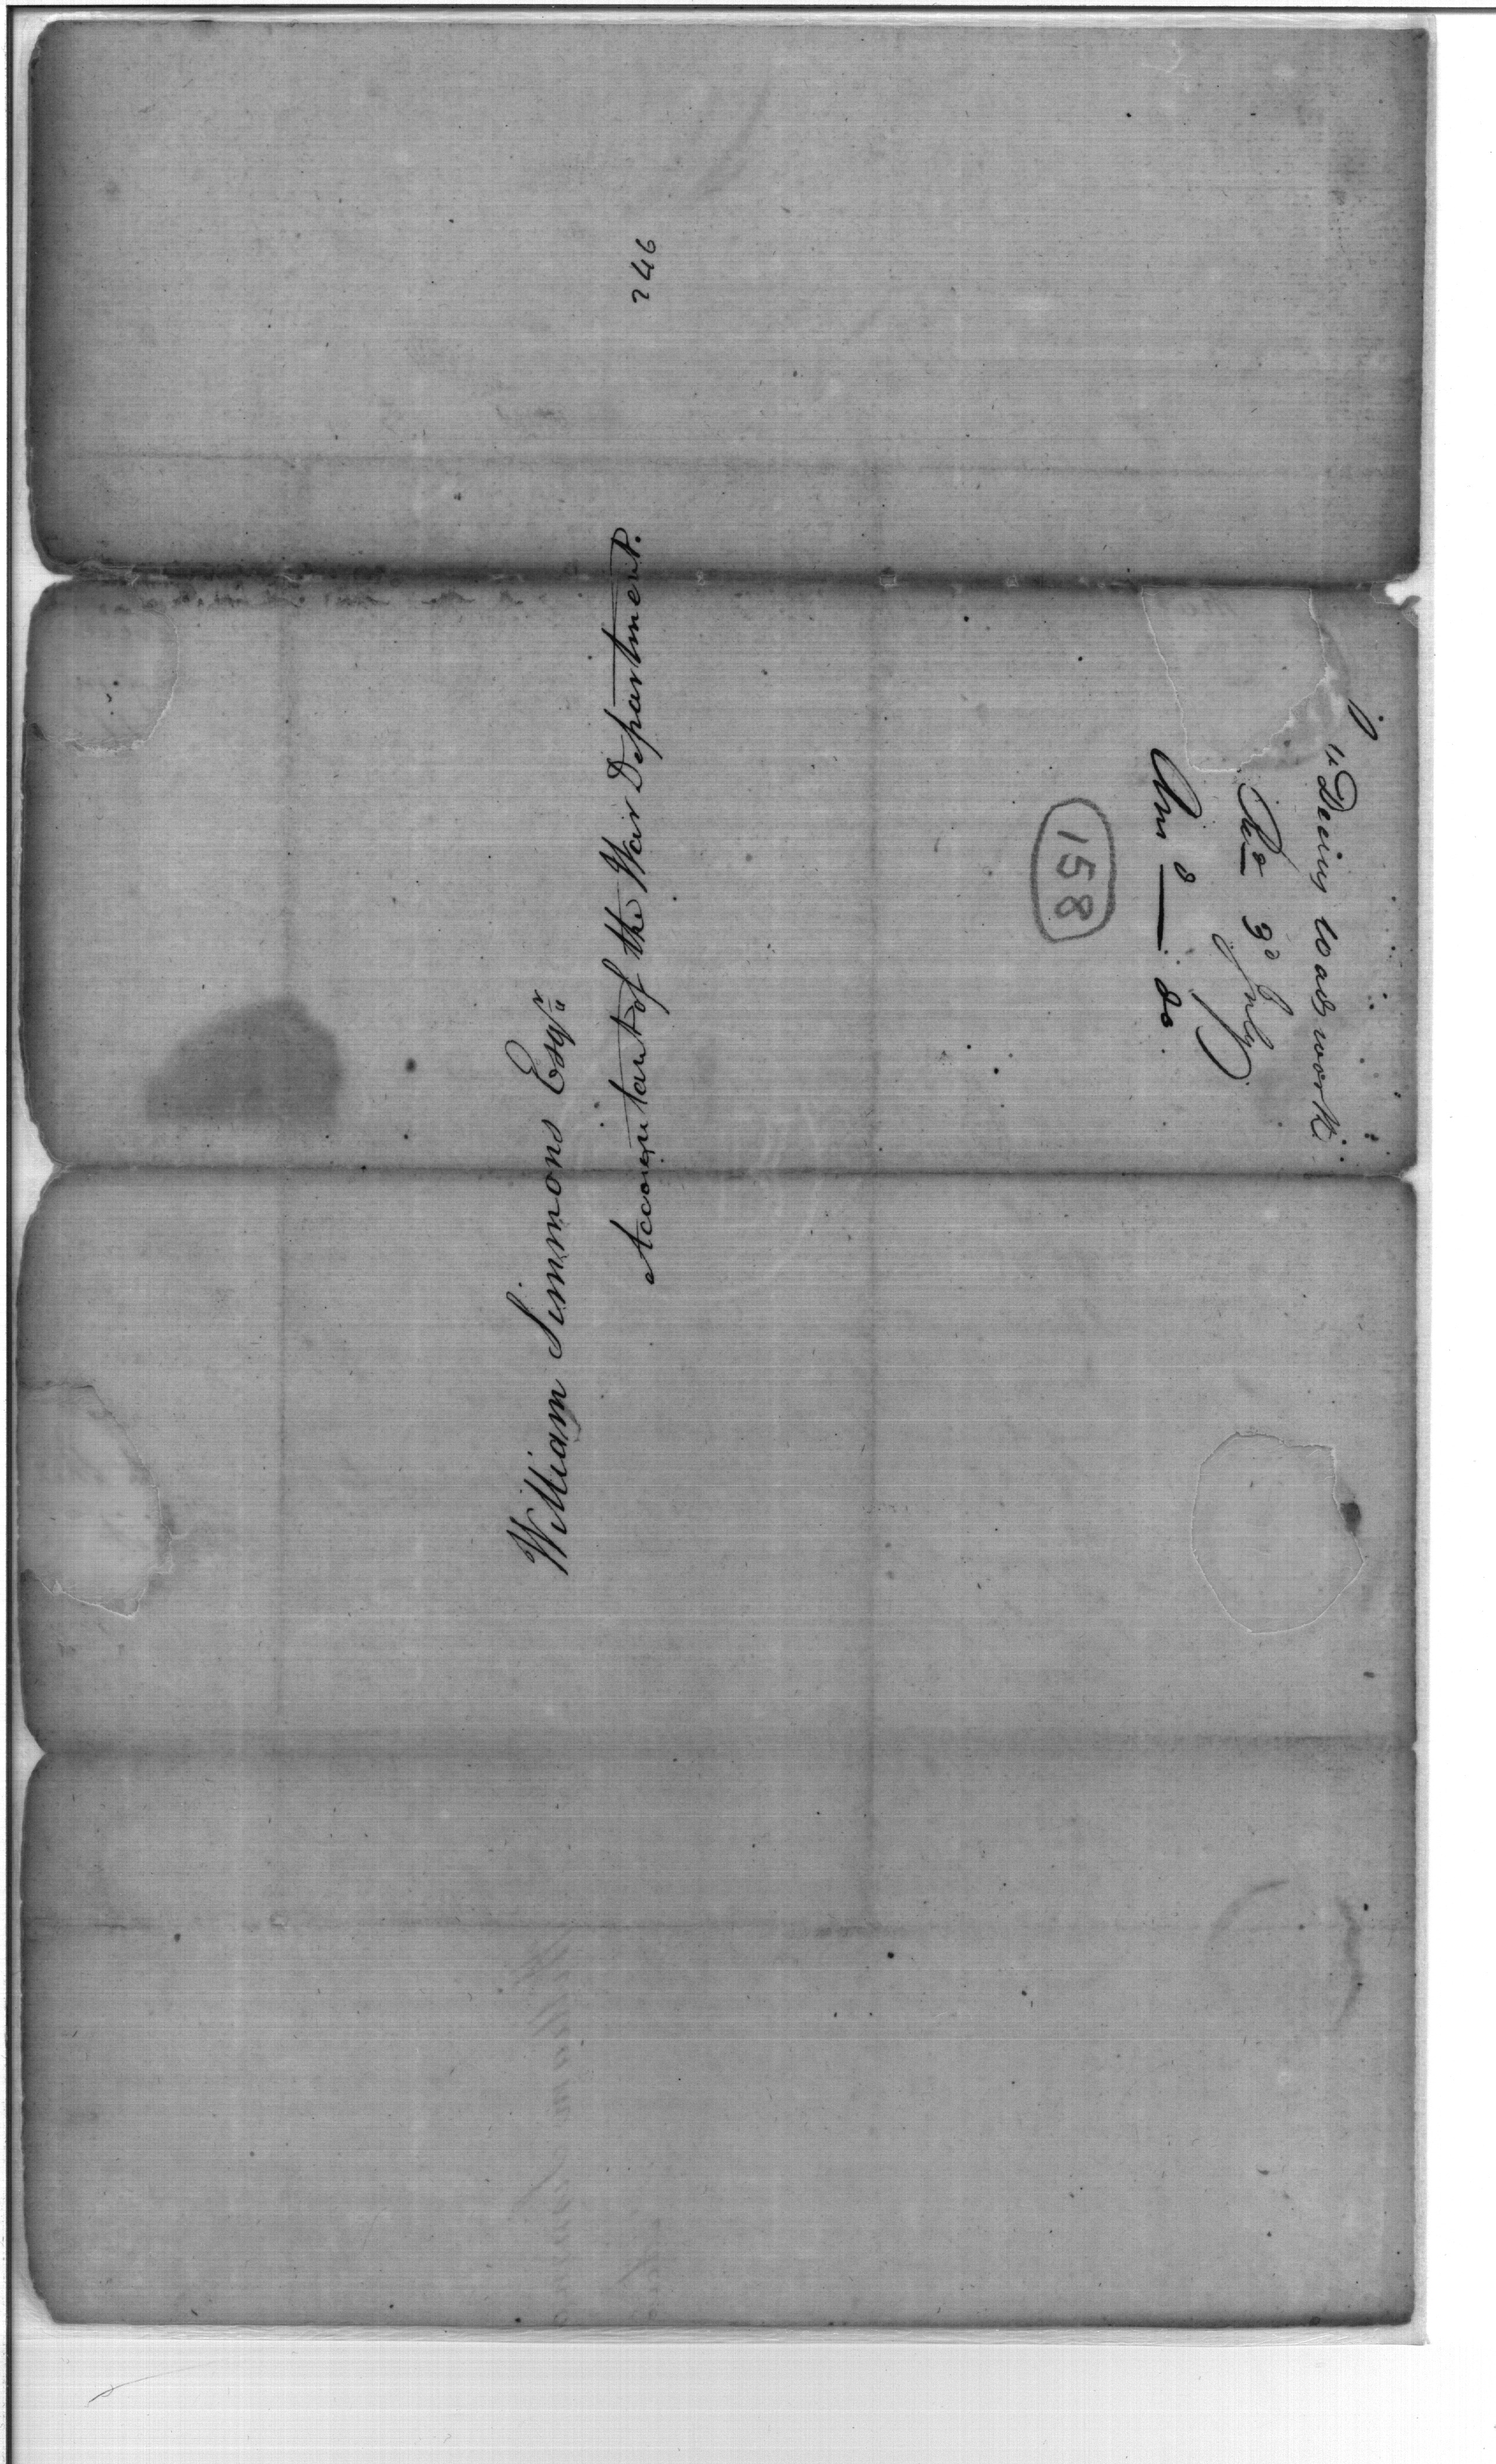 William Simmons Esqr
Accountant of the War Department.
246
"Decius Wadsworth
Recd 3d July
Ansd — do.
158